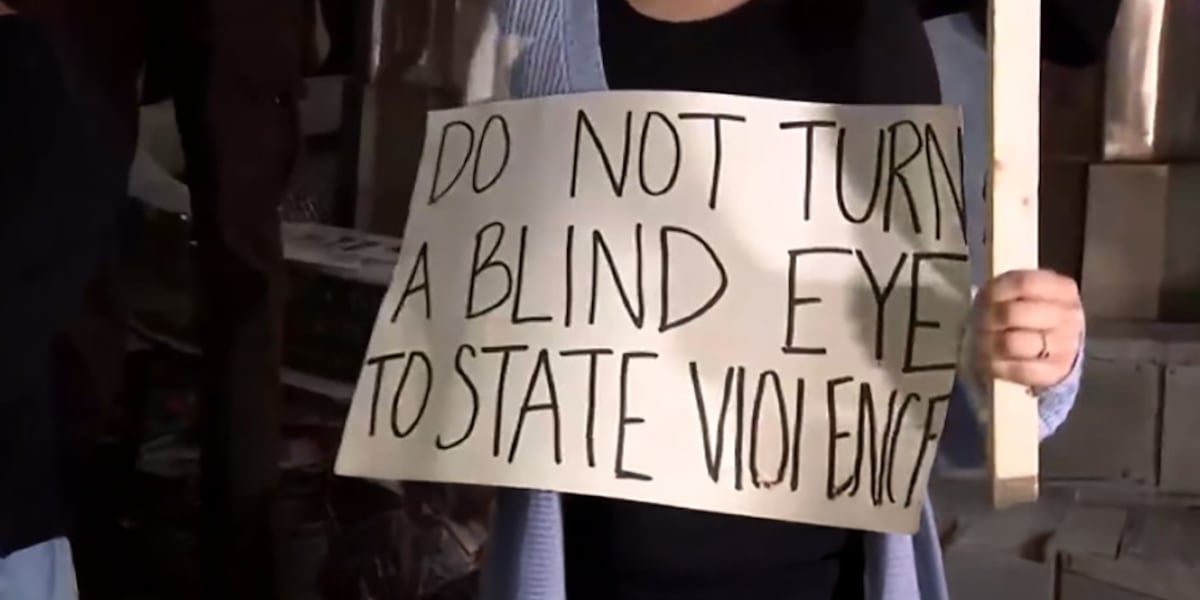 DO NOT TURN
A BLIND EYE
TO STATE VIOLENCE